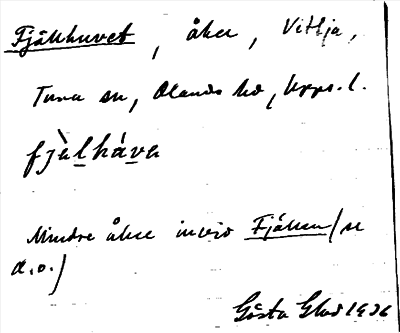 Fjälhuvet, åker, Vittja,
Tuna sn, Olands hd, Upps. l.
fjä̀lhá̀va
Mindre åker invid Fjälen (se
d.o.)
Gösta Glad 1936